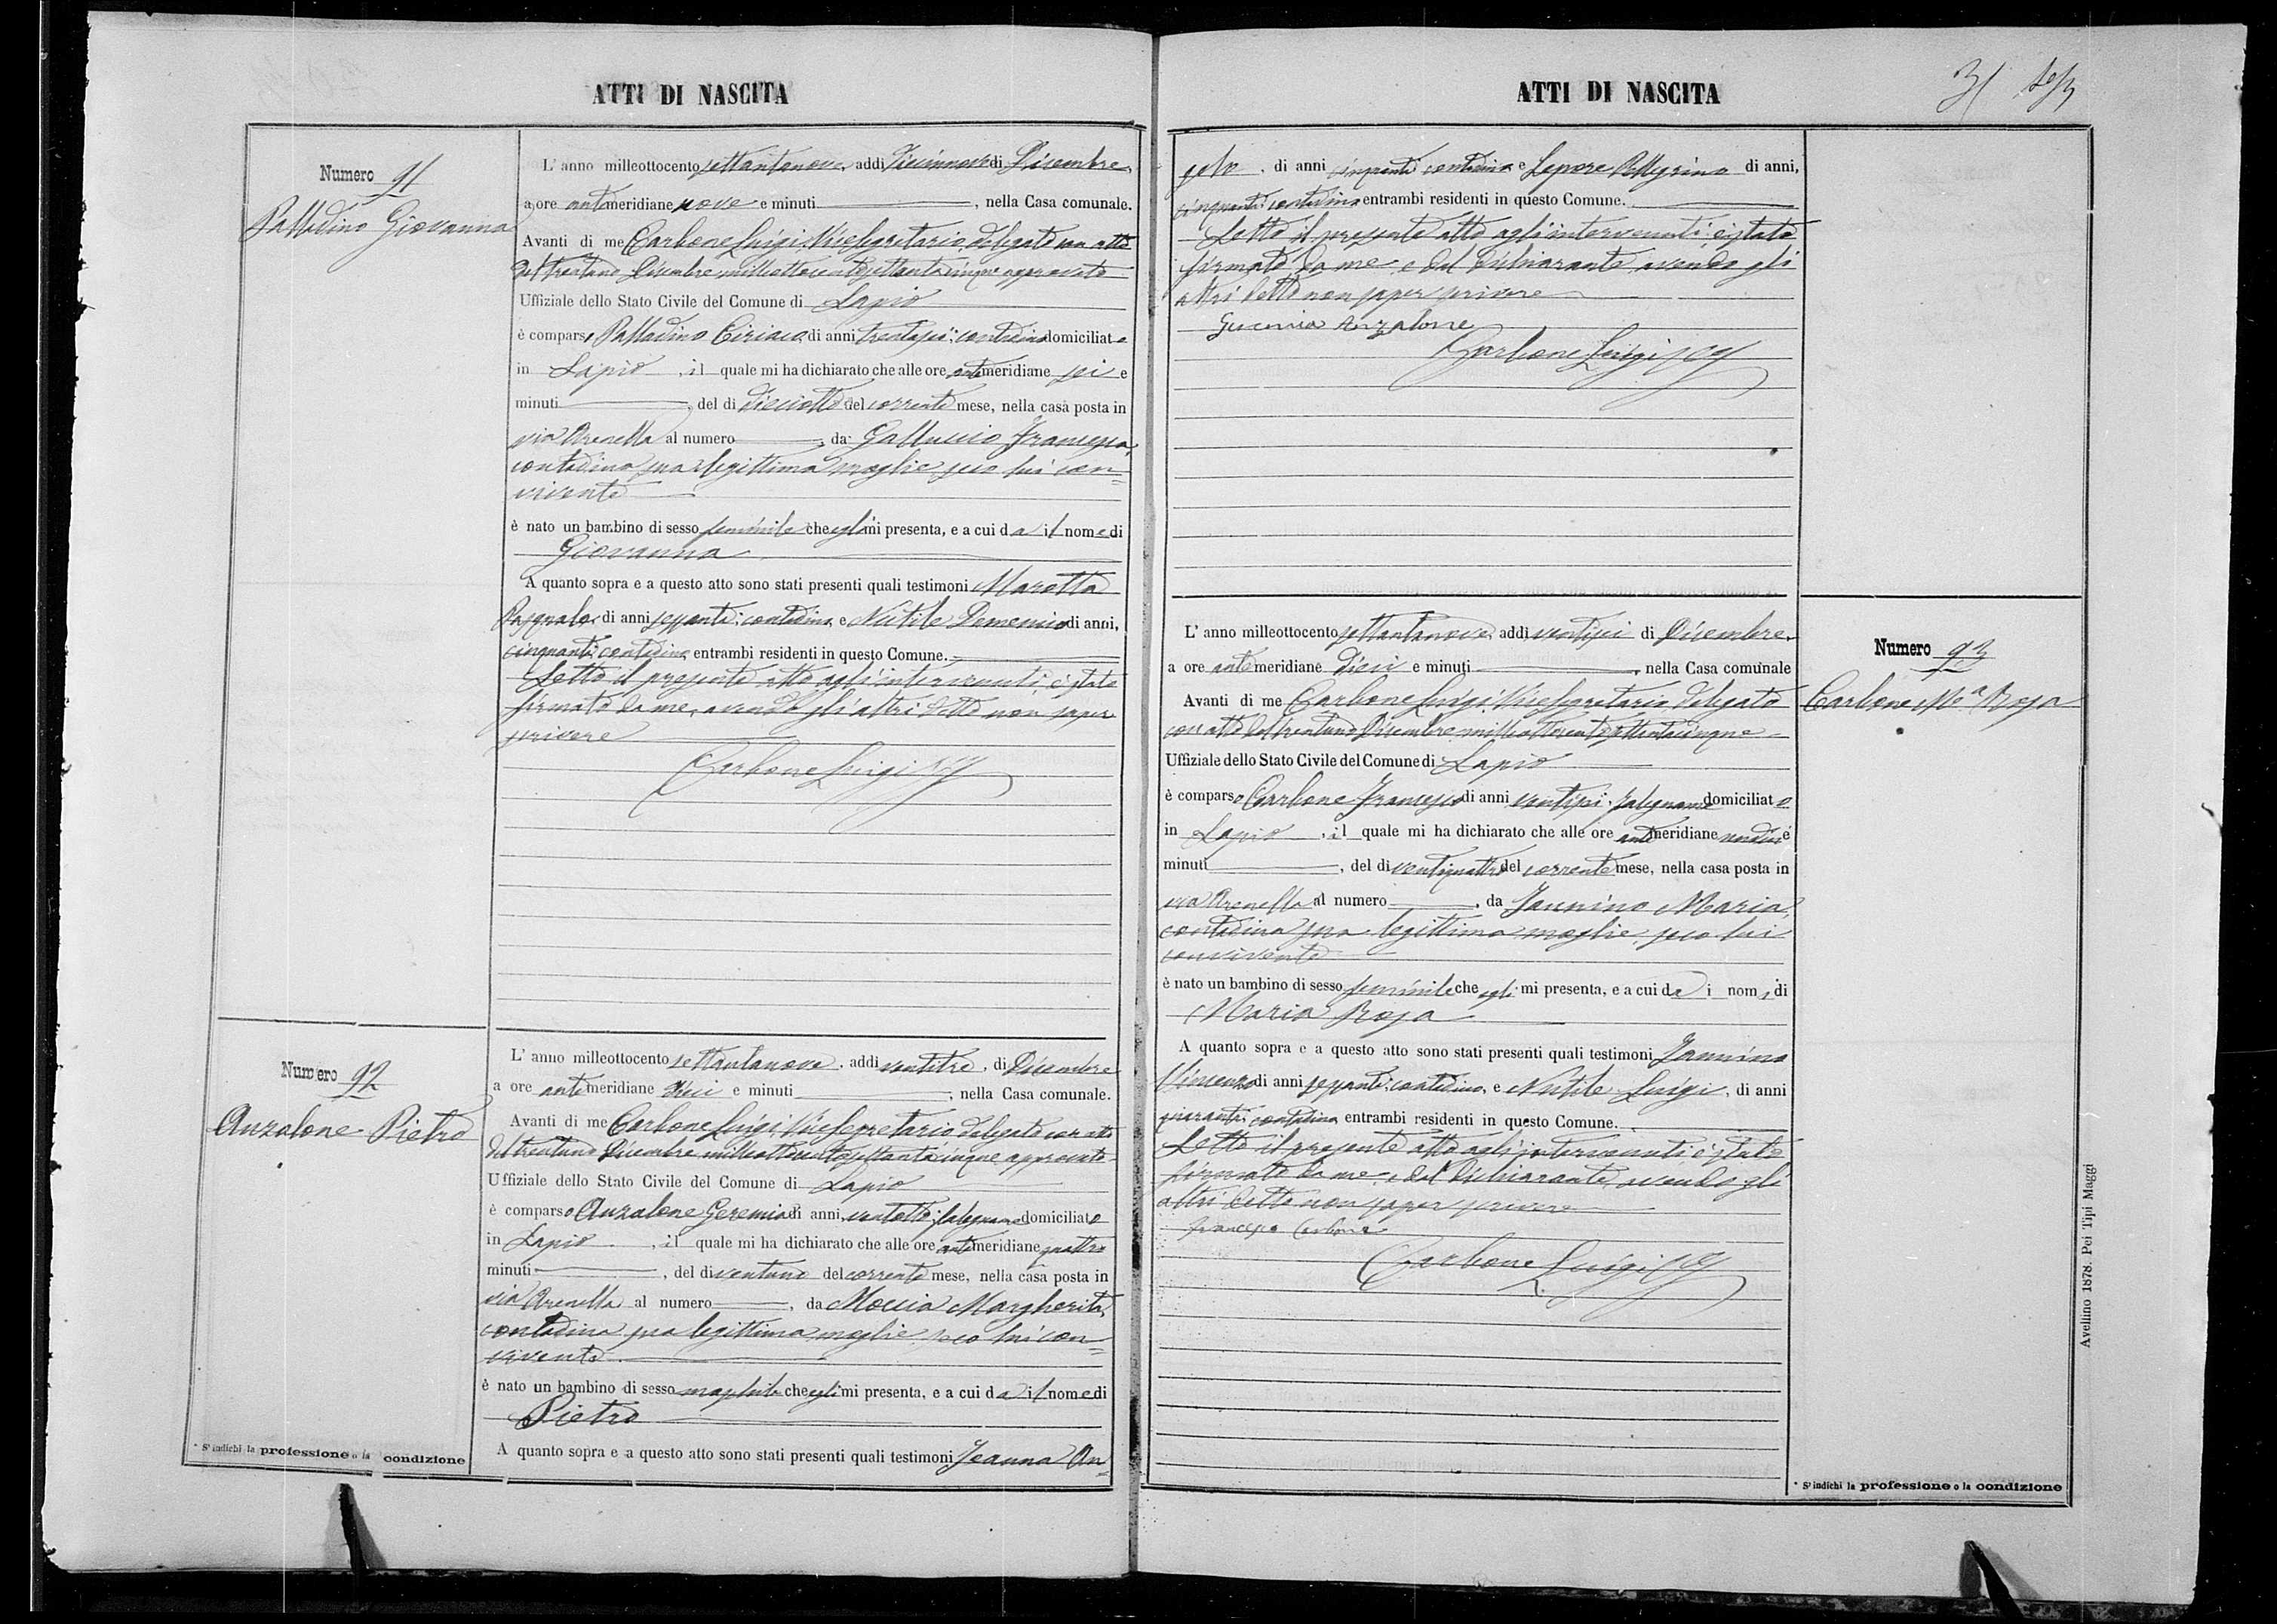 ATTI DI NASCITA
Numero 91
Palladino Giovanna
L' anno milleottocento settantanove, addi diecinnove di Dicembre,
a ore antimeridiane nove e minuti , nella Casa comunale.
Avanti di me Carbone Luigi Vicesegretario delegato con atto
del trentuno Dicembre milleottocentosettantacinque approvato
Uffiziale dello Stato Civile del Comune di Lapio
è comparso Palladino Ciriaco, di anni trentasei, contadino domiciliato
in Lapio, il quale mi ha dichiarato che alle ore antimeridiane sei e
minuti , del di dieciotto del corrente mese, nella casa posta in
via Arenella al numero , da Galluccio Francesca,
contadina sua legittima moglie, seco lui con=
vivente
è nato un bambino di sesso feminile che egli mi presenta, e a cui da il nome di
Giovanna
A quanto sopra e a questo atto sono stati presenti quali testimoni Marotta
Pasquale, di anni sessanta, contadino, e Nutile Domenico di anni,
cinquanta, contadino, entrambi residenti in questo Comune.
Letto il presente atto agl'intervenuti, è stato
firmato da me, avendo gli altri detto non saper
scrivere
Carbone Luigi
Numero 92
Anzalone Pietro
L' anno milleottocento settantanove, addi ventitre, di Dicembre
a ore antimeridiane dieci e minuti , nella Casa comunale.
Avanti di me Carbone Luigi, Vicesegretario delegato con atto
del trentuno Dicembre milleottocentosettantacinque approvato
Uffiziale dello Stato Civile del Comune di Lapio
è comparso Anzalone Geremia di anni ventotto, falegname domiciliato
in Lapio, il quale mi ha dichiarato che alle ore antimeridiane quattro
minuti , del di ventuno del corrente mese, nella casa posta in
via Arenella al numero , da Moccia Margherita,
contadina sua legittima moglie, seco lui con=
vivente
è nato un bambino di sesso maschile che egli mi presenta, e a cui da il nome di
Pietro
A quanto sopra e a questo atto sono stati presenti quali testimoni Jeanna An=
* S' indichi la professione o la condizione
ATTI DI NASCITA
31
gelo, di anni cinquanta contadino e Lepore Pellegrino di anni,
cinquanta, contadino entrambi residenti in questo Comune.
Letto il presente atto agli intervenuti è stato
firmato da me e dal dichiarante avendo gli
altri detto non saper scrivere
Geremia Anzalone
Carbone Luigi
Numero 93
Carbone Ma Rosa
L' anno milleottocento settantanove, addi ventisei di Dicembre,
a ore antimeridiane dieci e minuti , nella Casa comunale
Avanti di me Carbone Luigi, Vicesegretario delegato
con atto del trentuno Dicembre milleottocentosettantacinque
Uffiziale dello Stato Civile del Comune di Lapio
è comparso Carbone Francesco di anni ventisei, falegname domiciliato
in Lapio, il quale mi ha dichiarato che alle ore antimeridiane e
minuti , del di ventiquattro del corrente mese, nella casa posta in
via Arenella al numero , da Jannino Maria,
contadina sua legittima moglie, seco lui
convivente
è nato un bambino di sesso feminile che egli mi presenta, e a cui da i nomi di
Maria Rosa
A quanto sopra e a questo atto sono stati presenti quali testimoni Jannino
Vincenzo di anni sessanta, contadino, e Nutile Luigi, di anni
quaranta, contadino entrambi residenti in questo Comune.
Letto il presente atto agl'intervenuti è stato
firmato da me, e dal dichiarante, avendo gli
altri detto non saper scrivere
Francesco Carbone
Carbone Luigi
* S' indichi la professione o la condizione
Avellino 1878. Pei Tipi Maggi